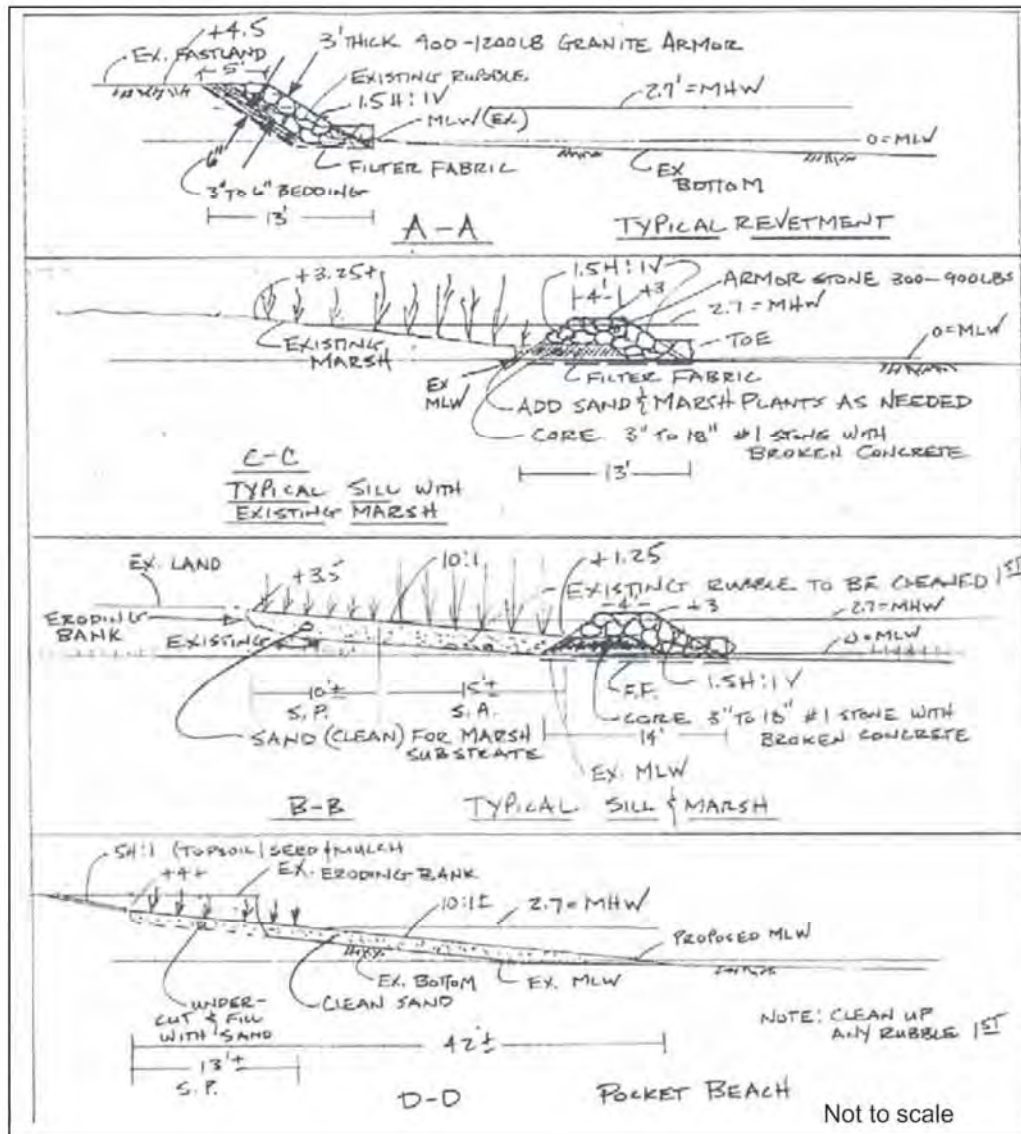 +4.5
EX. FASTLAND
5'
3' THICK 900-1200LB GRANITE ARMOR
EXISTING RUBBLE
1.5H:1V
MLW (EX)
2.7' = MHW
0 = MLW
6"
FILTER FABRIC
3" TO 6" BEDDING
EX BOTTOM
13'
A-A
TYPICAL REVETMENT
+3.25±
1.5H:1V
4'
+3
ARMOR STONE 300-900LBS
2.7 = MHW
TOE
0 = MLW
EXISTING MARSH
EX MLW
FILTER FABRIC
ADD SAND & MARSH PLANTS AS NEEDED
CORE 3" TO 18" #1 STONE WITH
BROKEN CONCRETE
13'
C-C
TYPICAL SILL WITH
EXISTING MARSH
EX. LAND
+3.5
10:1
+1.25
EXISTING RUBBLE TO BE CLEANED 1ST
4'
+3
2.7 = MHW
ERODING
BANK
EXISTING
0 = MLW
10'±
S.P.
15'±
S.A.
F.F.
1.5H:1V
SAND (CLEAN) FOR MARSH
SUBSTRATE
CORE 3" TO 18" #1 STONE WITH
BROKEN CONCRETE
14'
EX. MLW
B-B
TYPICAL SILL & MARSH
5H:1 (TOPSOIL) SEED & MULCH
+4±
EX. ERODING BANK
10:1±
2.7 = MHW
PROPOSED MLW
EX. BOTTOM
EX. MLW
CLEAN SAND
UNDER-
CUT & FILL
WITH SAND
NOTE: CLEAN UP
ANY RUBBLE 1ST
42'±
13'±
S.P.
D-D
POCKET BEACH
Not to scale